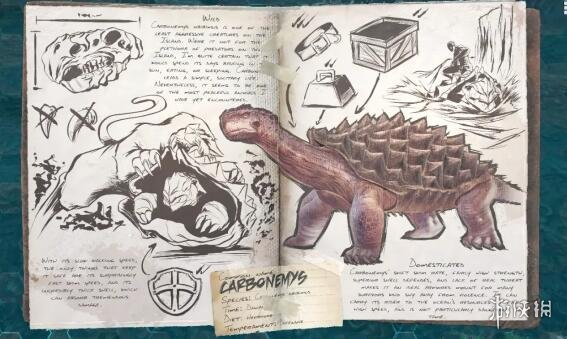 Wild
Carbonemys obibimus is one of the
least aggressive creatures on the
Island. Were it not for the
plethora of predators on this
Island, I'm quite certain that
would spend its days basking in the
sun, eating, or sleeping.
a simple, solitary life.
Nevertheless, it seems to be one
of the most peaceful animals
have yet encountered.
With its slow walking speed,
the only things that keep
it safe are its surprisingly
fast swim speed, and its
incredibly thick shell, which
can absorb tremendous
damage.
Common name
Carbonemys
Species:
Time:
Diet:
Temperament: Defensive
Domesticated
Carbonemys' swift swim rate, fairly high strength,
superior shell defenses, and lack of real threat
makes it an ideal armored mount for many
survivors who shy away from violence. It can
carry its rider to the ocean's resources
high speed, and is not particularly
time.
游侠网